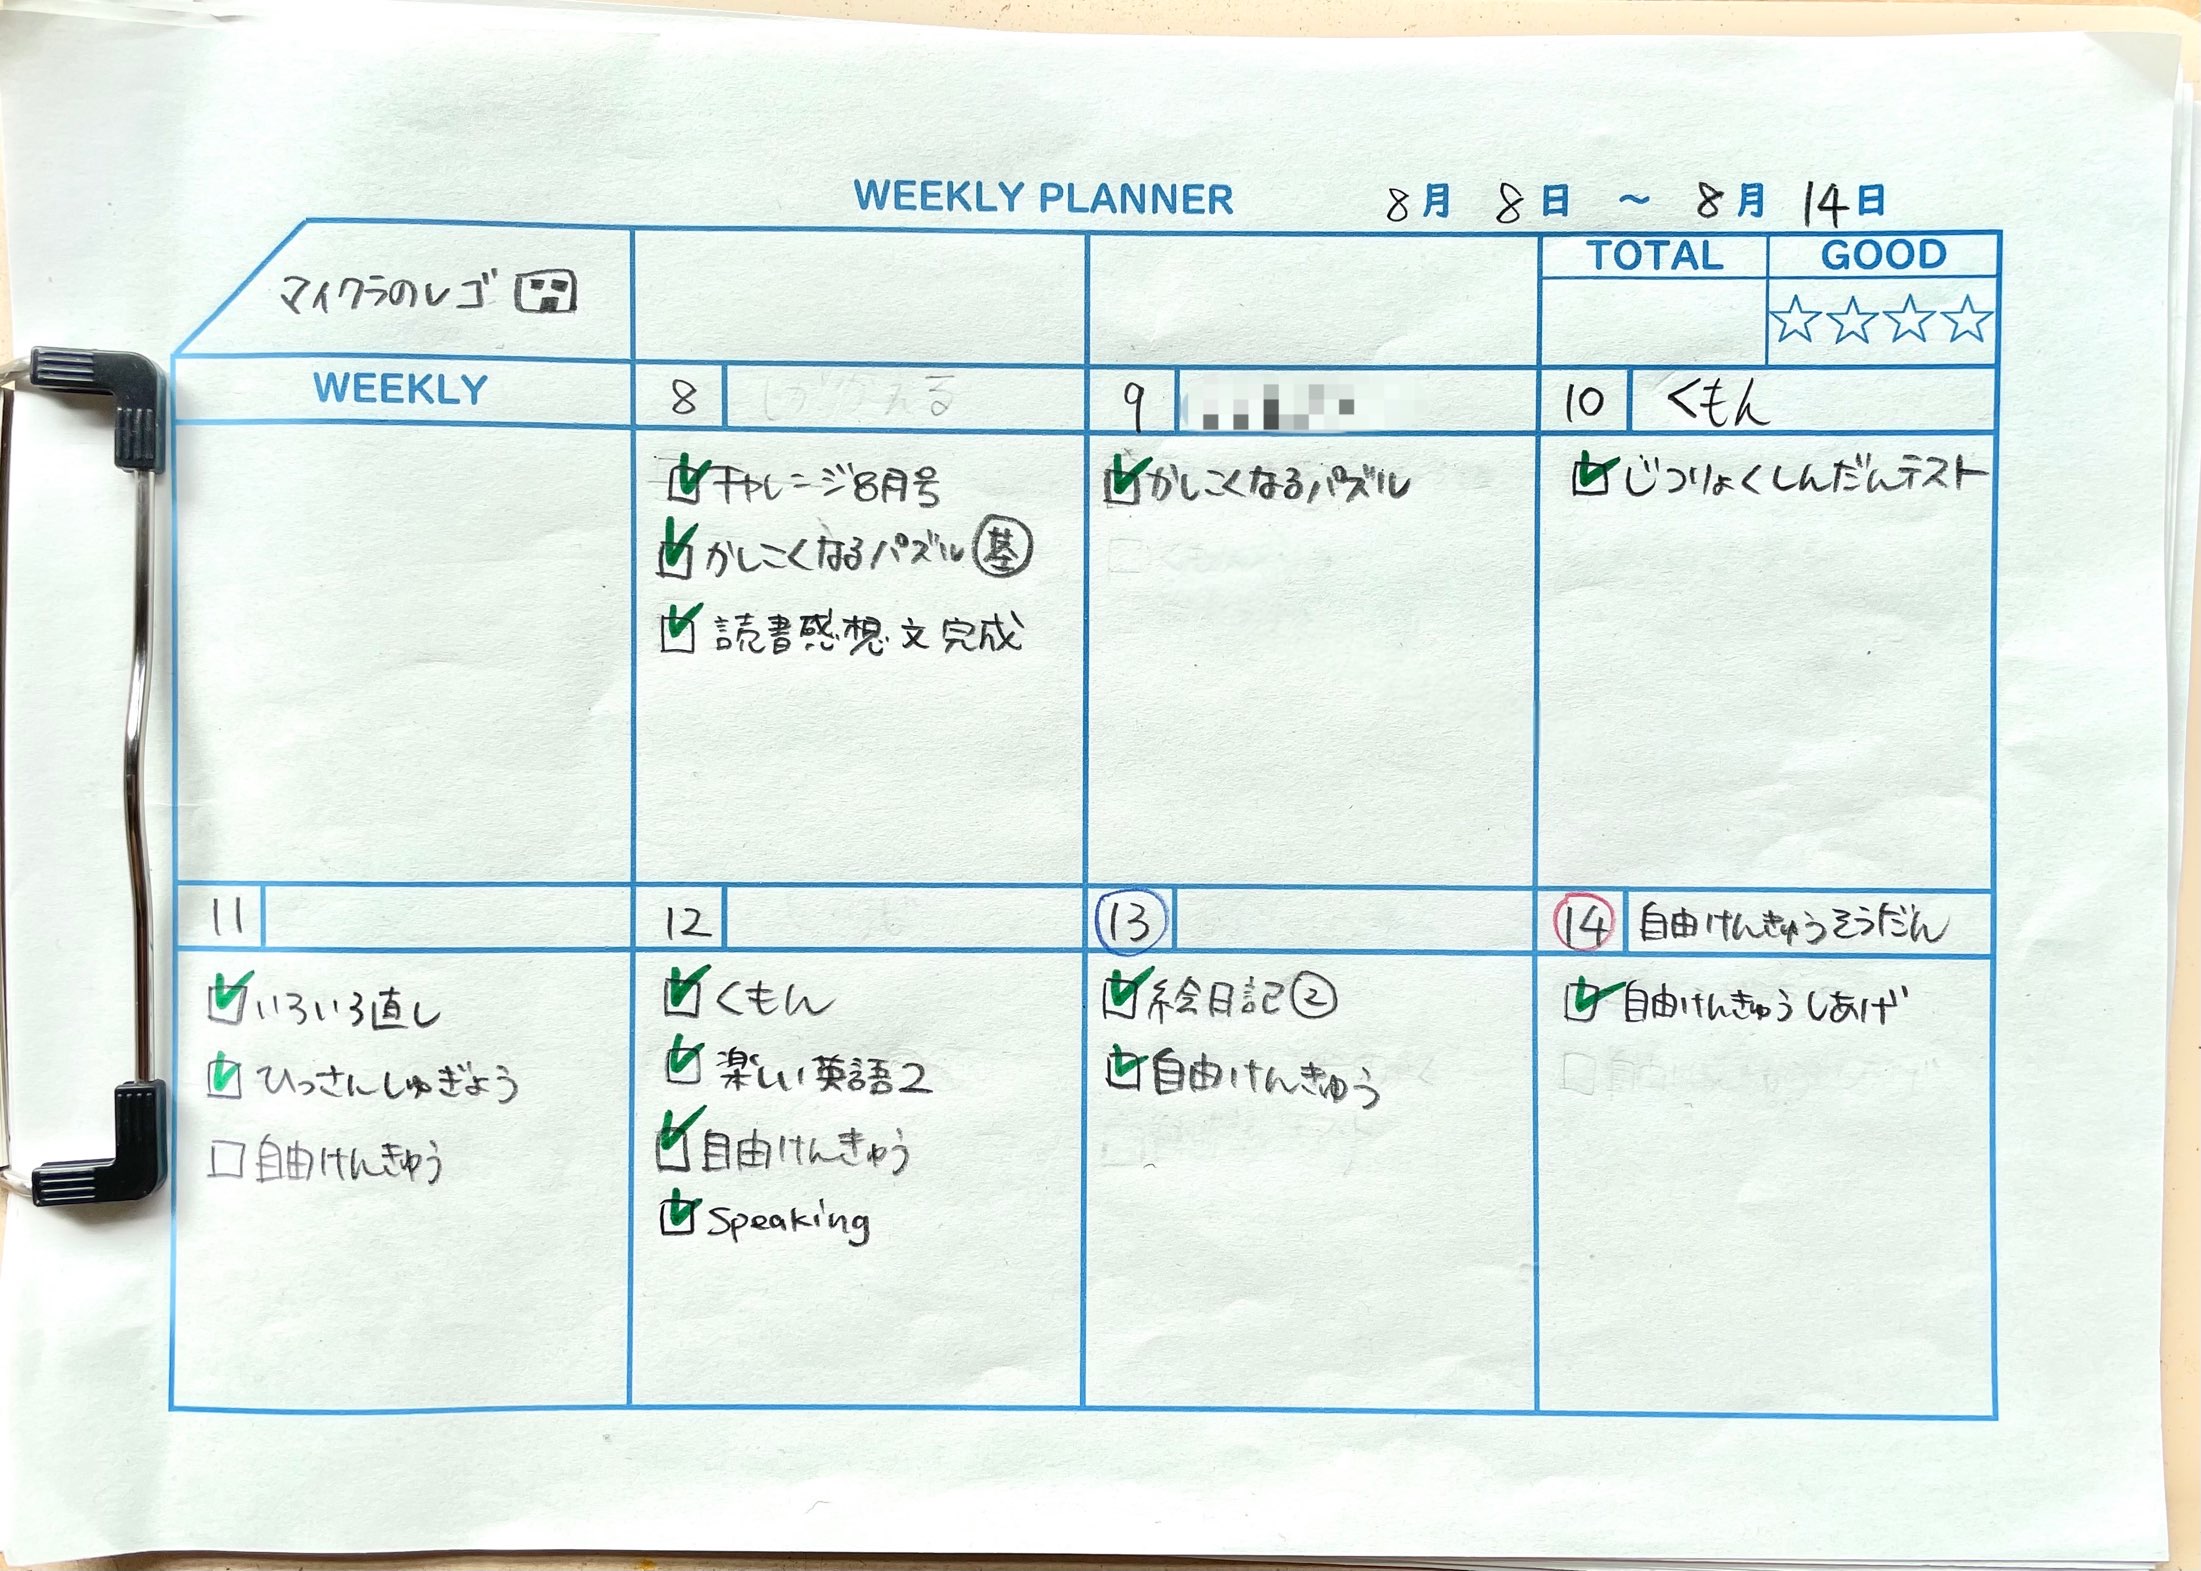 WEEKLY PLANNER 8月 8日 ~ 8月 14日
マイクラのレゴ
TOTAL GOOD
WEEKLY
8
チャレンジ8月号
かしこくなるパズル 基
読書感想文完成
9
かしこくなるパズル
10 くもん
じつりょくしんだんテスト
11
いろいろ直し
ひっさんしゅぎょう
自由けんきゅう
12
くもん
楽しい英語2
自由けんきゅう
Speaking
13
絵日記②
自由けんきゅう
14 自由けんきゅうそうだん
自由けんきゅうしあげ